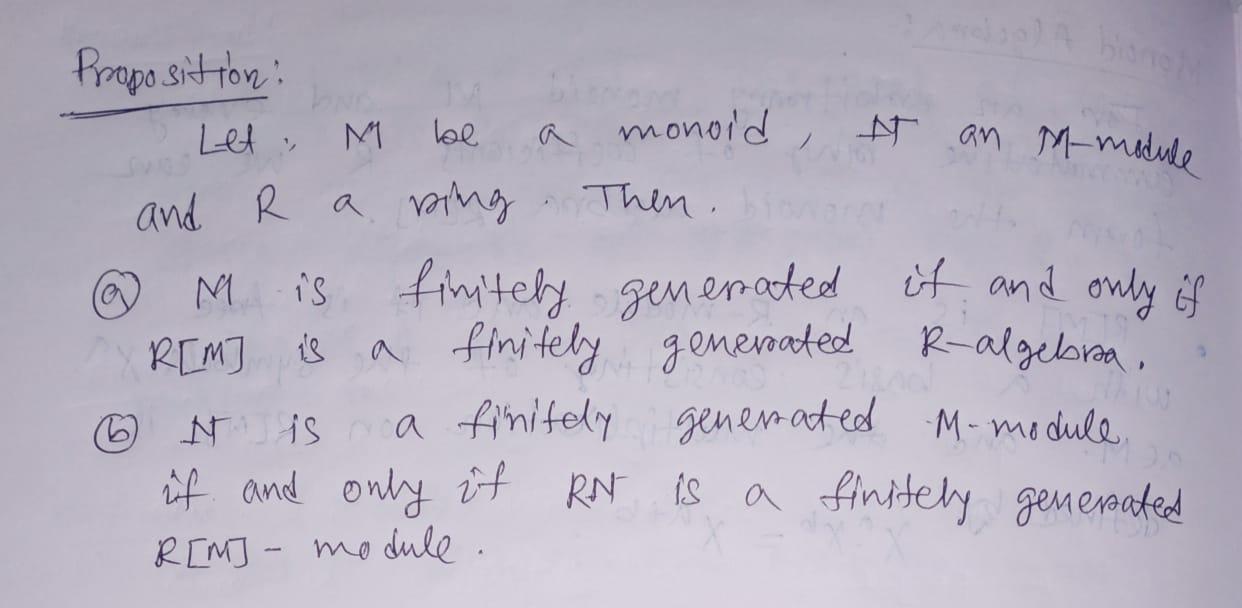 Proposition:
Let, M be a monoid, N an M-module
and R a ring. Then.
(a) M is finitely generated if and only if
R[M] is a finitely generated R-algebra.
(b) N is a finitely generated M-module
if and only if RN is a finitely generated
R[M] - module.